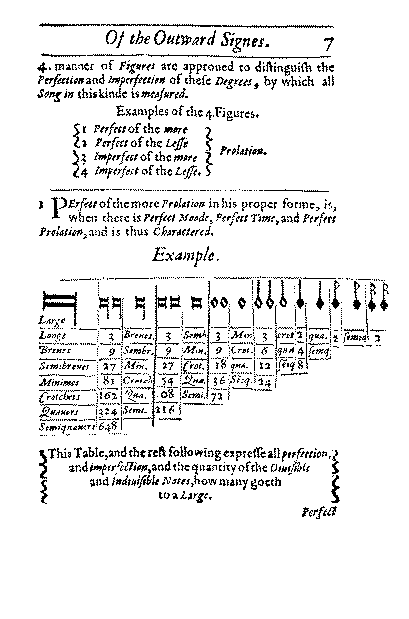 Of the Outward Signes. 7
4. manner of Figures are approued to distinguish the
Perfection and Imperfection of these Degrees, by which all
Song in this kinde is measured.
Examples of the 4. Figures.
1 Perfect of the more
2 Perfect of the Lesse
3 Imperfect of the more
4 Imperfect of the Lesse.
Prolation.
1 PErfect of the more Prolation in his proper forme, is,
when there is Perfect Moode, Perfect Time, and Perfect
Prolation, and is thus Charactered.
Example.
Large
Longe 3 Breues. 3 Semb. 3 Min. 3 crot 2 qua. 2 semiq 2
Breues 9 Sembr. 9 Min. 9 Crot. 6 qua 4 semq.
Semibreues 27 Min. 27 Crot. 18 qua. 12 seq 8
Minimes 81 Crotch 54 Qua. 36 Seq. 24
Crotchets 162 Qua. 108 Semi. 72
Quauers 324 Semi. 216
Semiquauers 648
This Table, and the rest following expresse all perfection,
and imperfection, and the quantity of the Diuisible
and Indiuisible Notes, how many goeth
to a Large.
Perfect